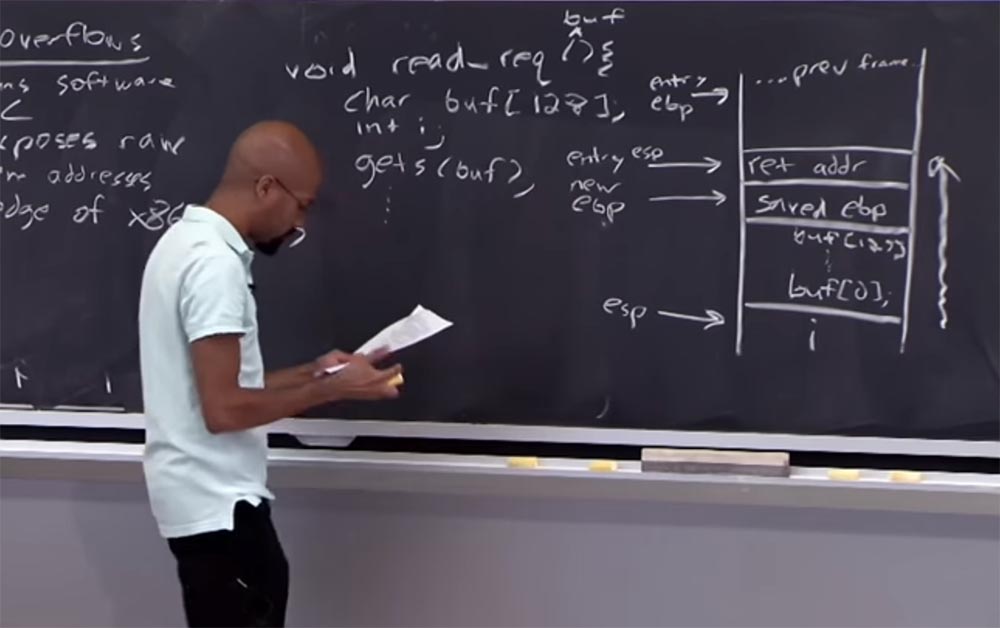 overflows
ns software
C
xposes raw
m addresses
edge of x86
buf
void read_req () {
char buf[128];
int i;
gets(buf);
entry
ebp
entry esp
new
ebp
esp
...prev frame...
ret addr
saved ebp
buf[127]
buf[0];
i